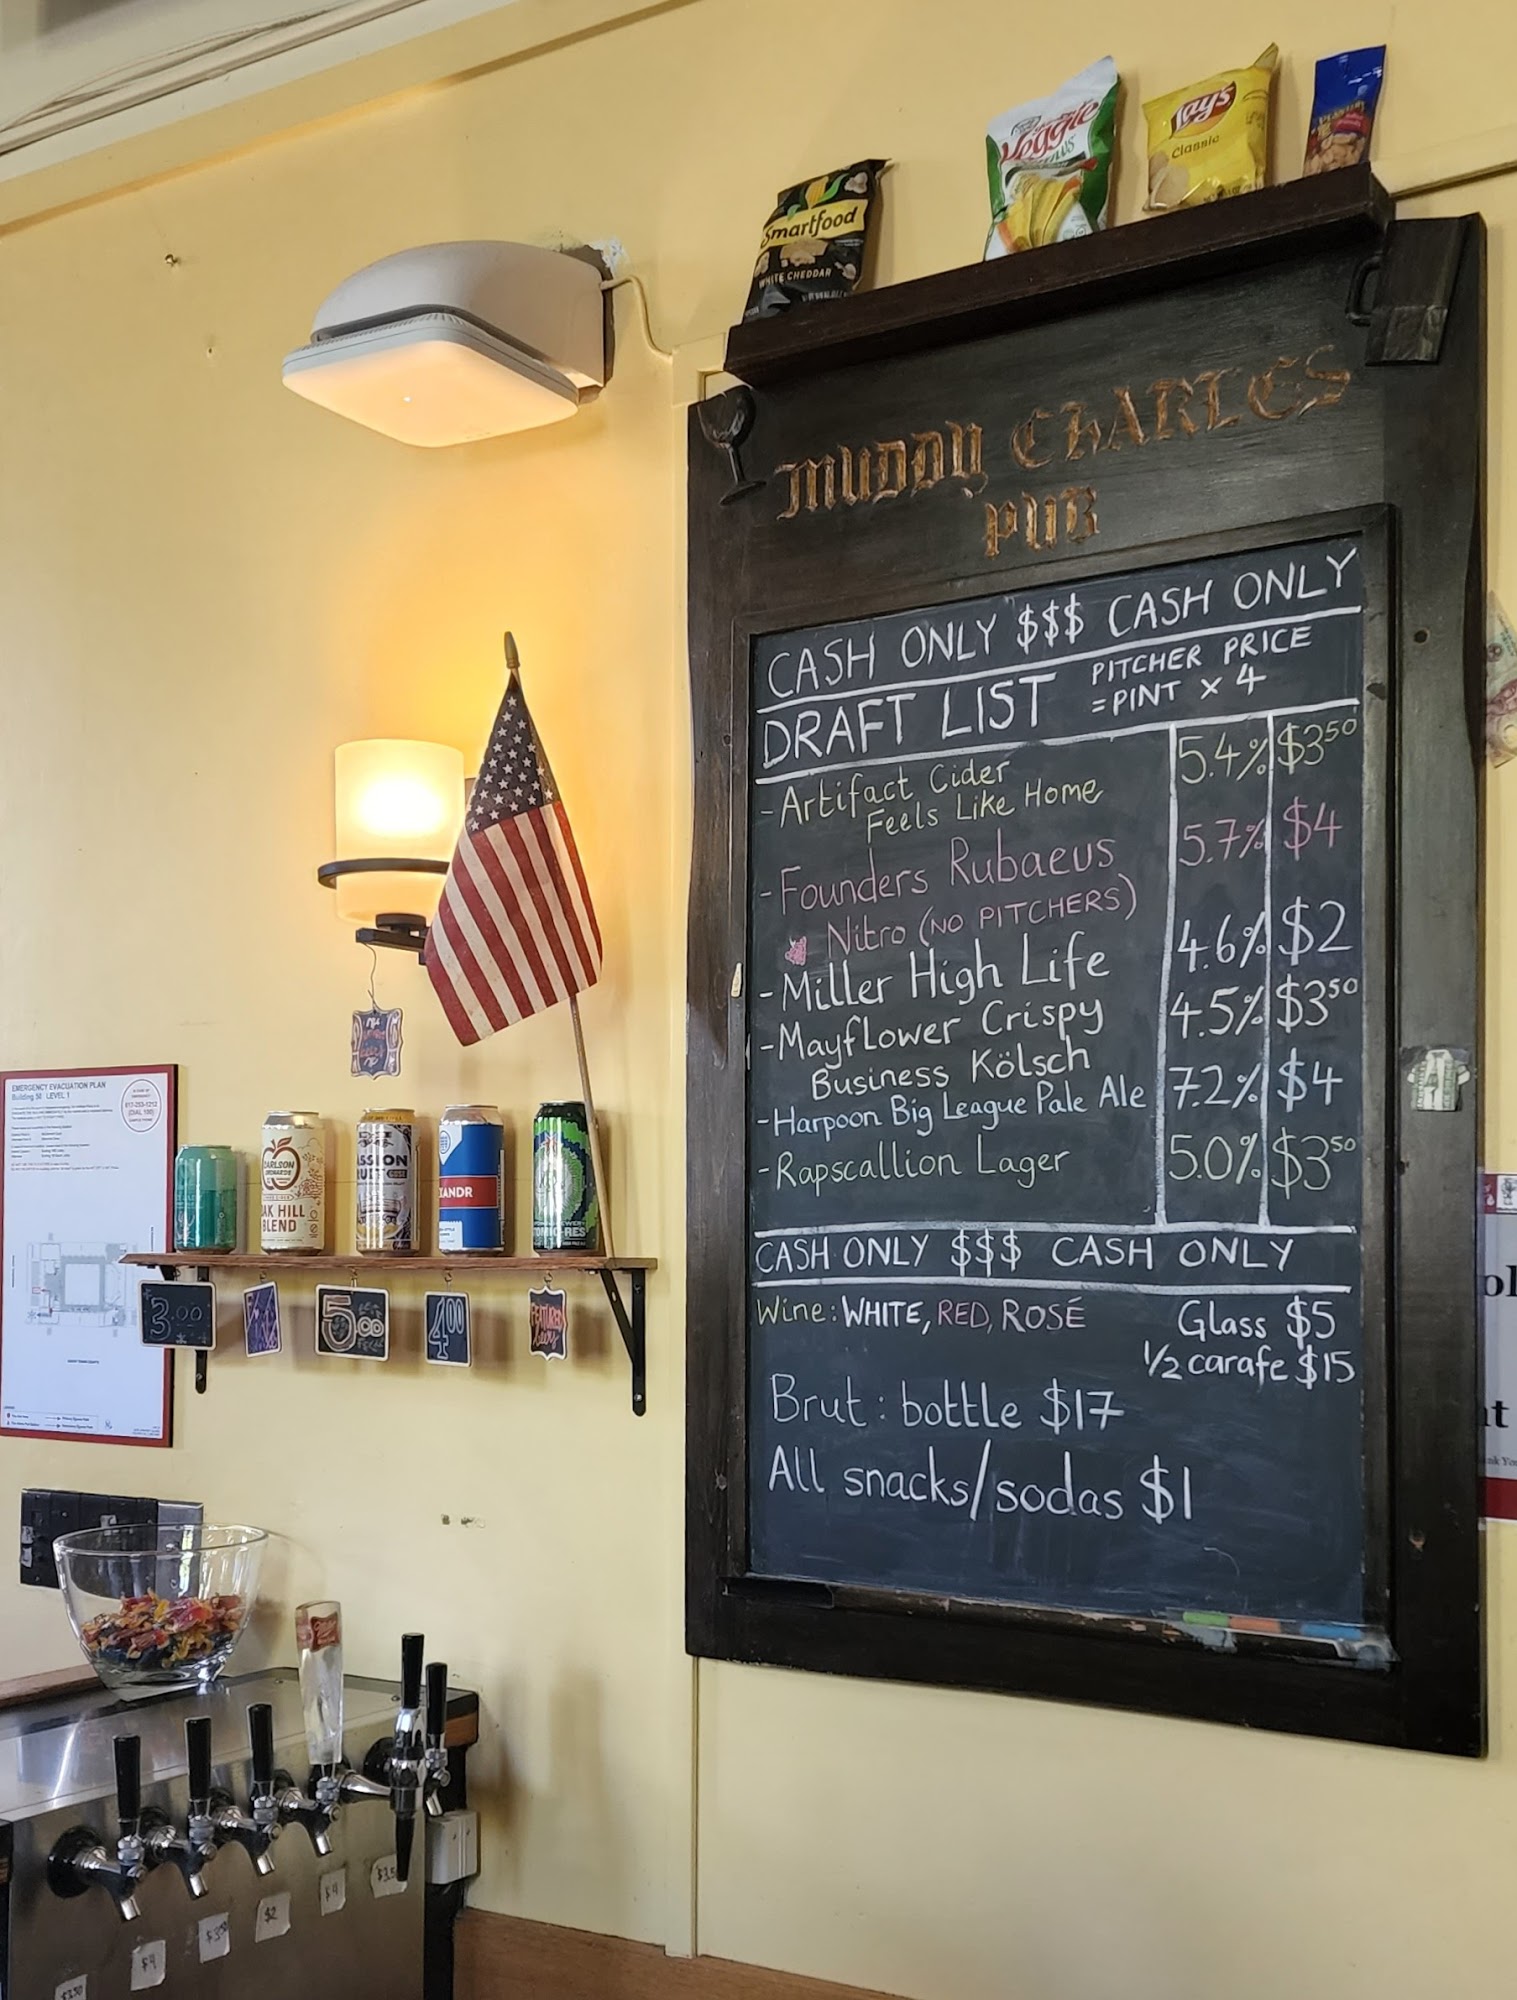 Smartfood
WHITE CHEDDAR
Veggie
Lay's
Classic
MUDDY CHARLES
PUB
CASH ONLY $$$ CASH ONLY
DRAFT LIST PITCHER PRICE
=PINT x 4
-Artifact Cider 5.4% $3⁵⁰
Feels Like Home
-Founders Rubaeus 5.7% $4
Nitro (NO PITCHERS)
-Miller High Life 4.6% $2
-Mayflower Crispy 4.5% $3⁵⁰
Business Kölsch
-Harpoon Big League Pale Ale 7.2% $4
-Rapscallion Lager 5.0% $3⁵⁰
CASH ONLY $$$ CASH ONLY
Wine: WHITE, RED, ROSÉ Glass $5
1/2 carafe $15
Brut: bottle $17
All snacks/sodas $1
EMERGENCY EVACUATION PLAN
Building 50 LEVEL 1
617-253-1212
(DIAL 100)
CARLSON
ORCHARDS
OAK HILL
BLEND
3.00
5.00
4.00
FEATURED
$3.50
$4
$3.50
$2
$4
$3.50